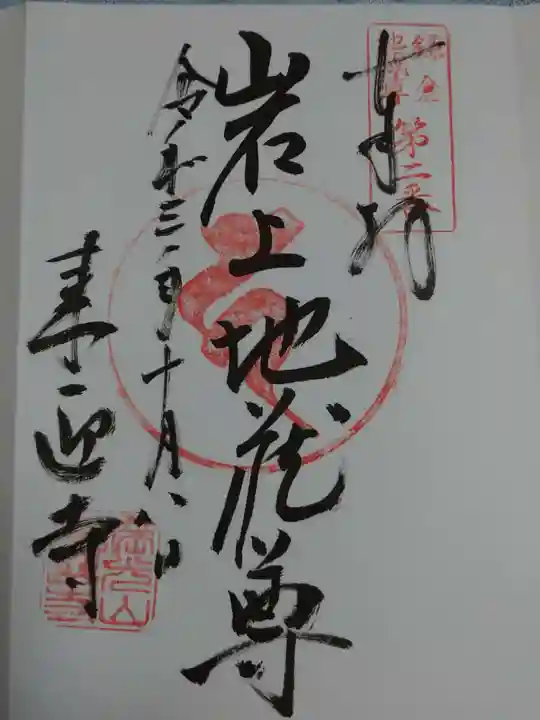 鎌倉
地蔵尊
第二番
奉拝
岩上地蔵尊
令和三年十月八日
来迎寺